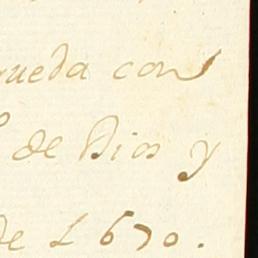 rueda con
de Dios y
de 1670.